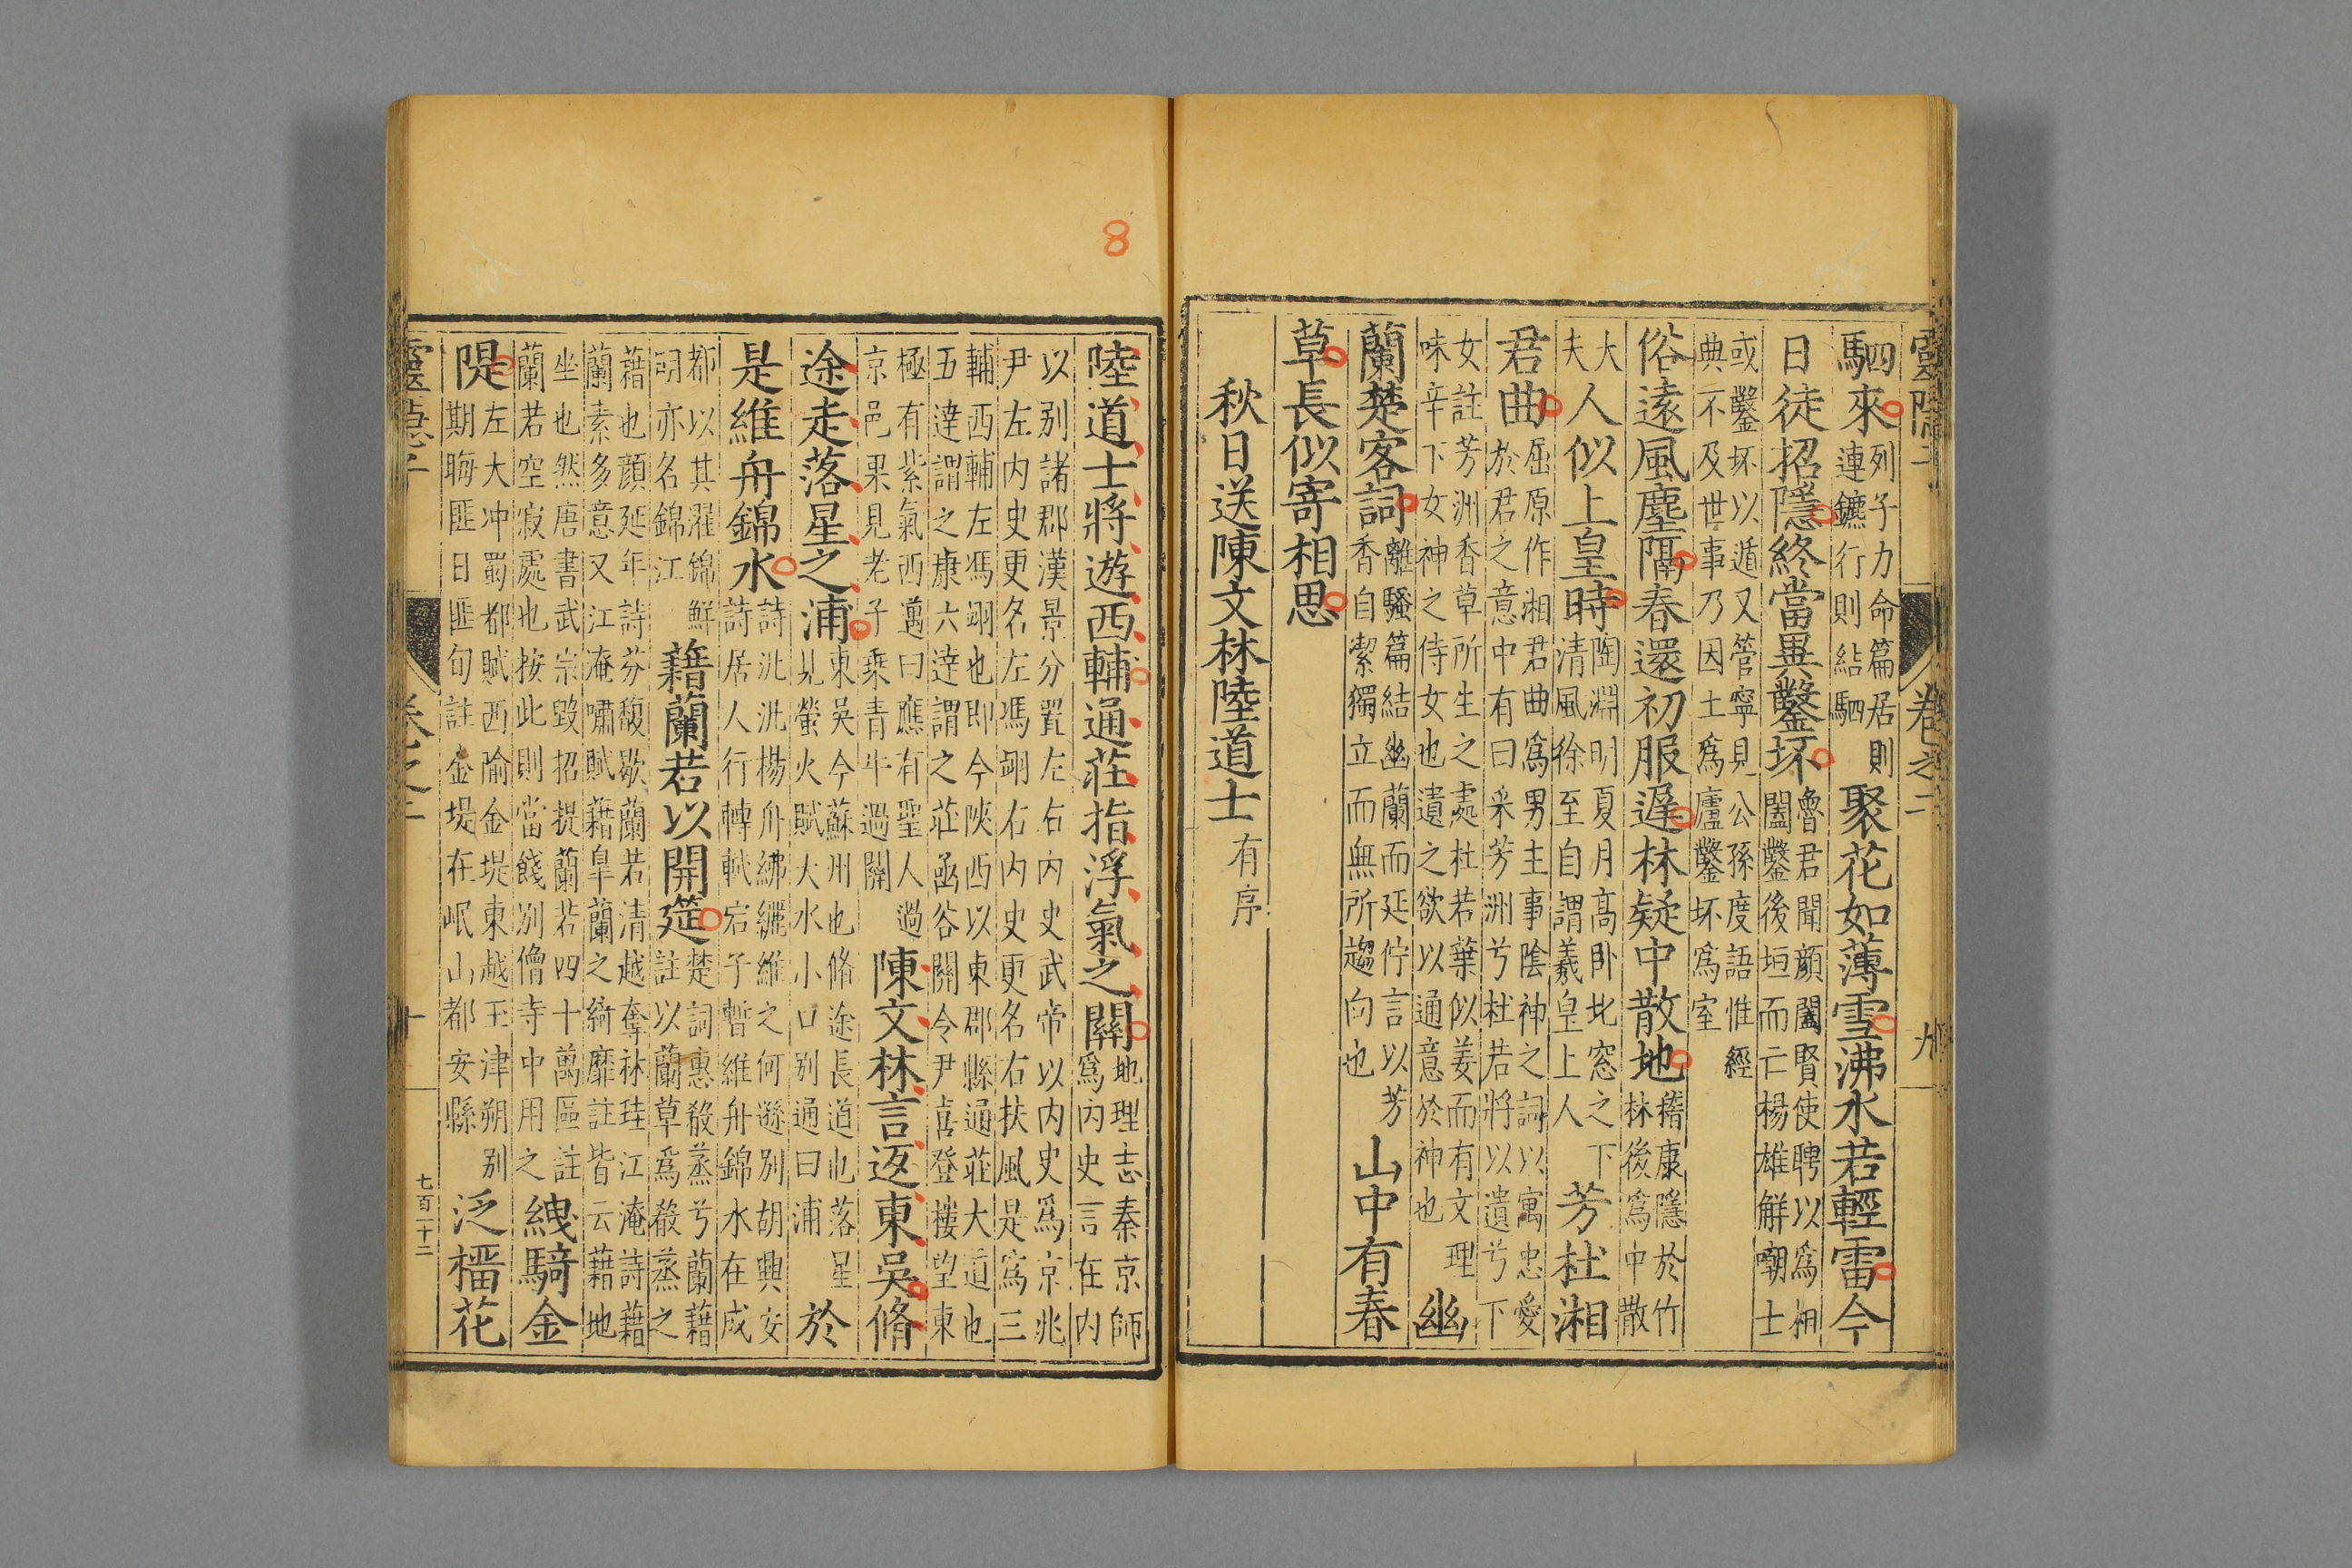 駟來列子力命篇居則
連鑣行則結駟聚花如薄雪沸水若輕雷今
日徒招隱終當異鑿坏魯君聞顏闔賢使聘以為相
闔鑿後垣而亡楊雄解嘲士
或鑿坏以遁又管寧見公孫度語惟經
典不及世事乃因土為廬鑿坏為室
俗遠風塵隔春還初服遲林疑中散地嵇康隱於竹
林後為中散
大夫人似上皇時陶淵明夏月高卧北窓之下
清風徐至自謂羲皇上人芳杜湘
君曲屈原作湘君曲為男主事陰神之詞以寓忠愛
於君之意中有曰采芳洲兮杜若將以遺兮下
女註芳洲香草所生之處杜若葉似姜而有文理
味辛下女神之侍女也遺之欲以通意於神也幽
蘭楚客詞離騷篇結幽蘭而延佇言以芳
香自潔獨立而無所趨向也山中有春
草長似寄相思
秋日送陳文林陸道士有序
卷之二
九
8
陸道士將遊西輔通莊指浮氣之關地理志秦京師
為內史言在內
以别諸郡漢景分置左右內史武帝以內史為京兆
尹左內史更名左馮翊右內史更名右扶風是為三
輔西輔左馮翊也即今陜西以東郡縣通莊大道也
五達謂之康六達謂之莊函谷關令尹喜登樓望東
極有紫氣西邁曰應有聖人過
京邑果見老子乘青牛過關陳文林言返東吳脩
途走落星之浦東吳今蘇州也脩途長道也落星
見螢火賦大水小口别通曰浦於
是維舟錦水詩汎汎楊舟紼纚維之何遜别胡興安
詩居人行轉軾宕子暫維舟錦水在成
都以其濯錦鮮
明亦名錦江藉蘭若以開筵楚詞惠殽蒸兮蘭藉
註以蘭草為殽蒸之
藉也顏延年詩芬馥歇蘭若清越奪琳珪江淹詩藉
蘭素多意又江淹嘯賦藉皐蘭之綺靡註皆云藉地
坐也然唐書武宗毀招提蘭若四十萬區註
蘭若空寂處也按此則當餞别僧寺中用之絏騎金
隄左大冲蜀都賦西隃金堤東越玉津朔别
期晦匪日匪旬註金堤在岷山都安縣泛榴花
卷之二
十
七百二十二